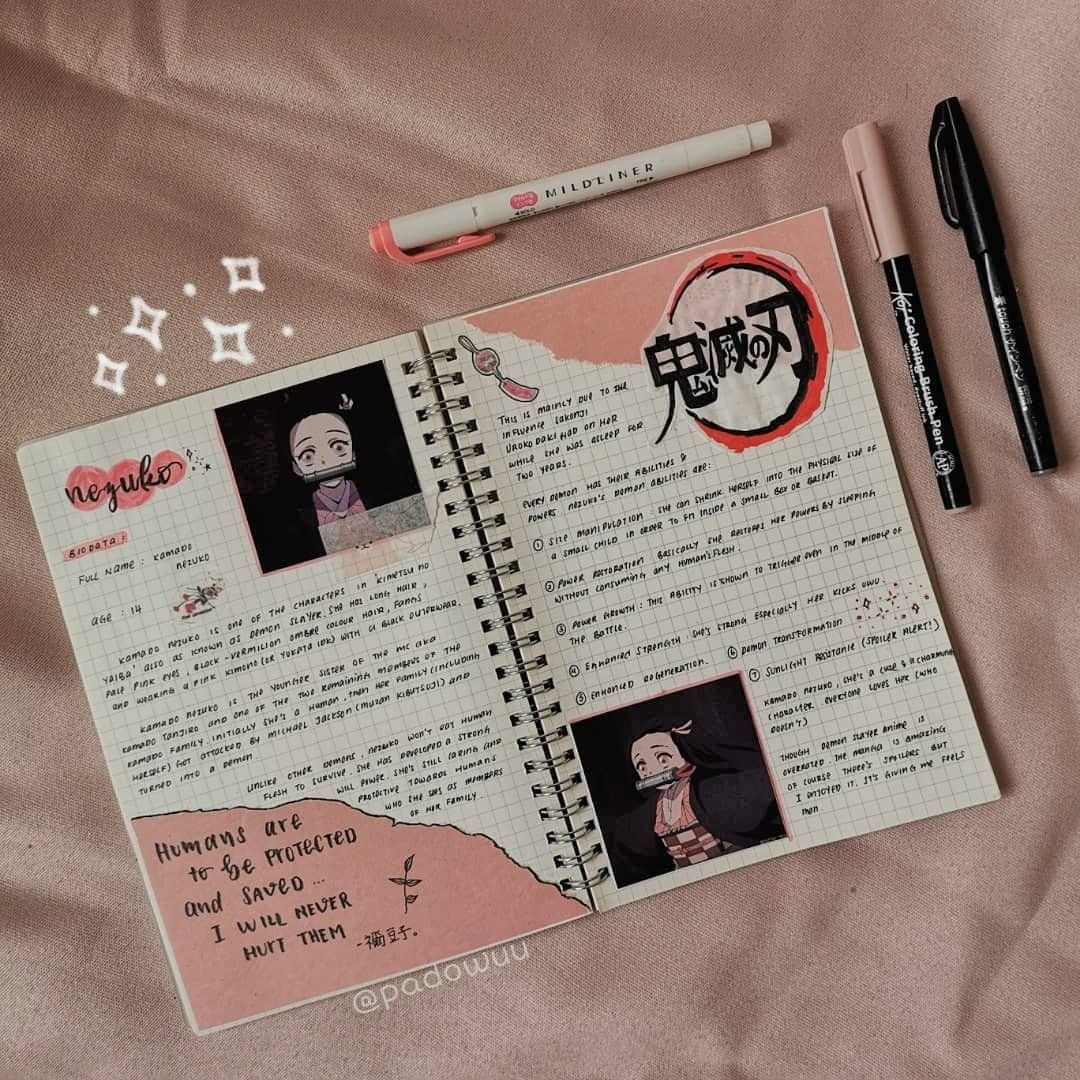 MILDLINER
Koi Coloring Brush Pen
nezuko
BIODATA :
FULL NAME : KAMADO
NEZUKO
AGE : 14
KAMADO NEZUKO IS ONE OF THE CHARACTERS IN 'KIMETSU NO
YAIBA', ALSO AS KNOWN AS DEMON SLAYER. SHE HAS LONG HAIR,
PALE PINK EYES, BLACK-VERMILION OMBRE COLOUR HAIR, FANGS
AND WEARING A PINK KIMONO (OR YUKATA IDK) WITH A BLACK OUTERWEAR.
KAMADO NEZUKO IS THE YOUNGER SISTER OF THE MC AKA
KAMADO TANJIRO AND ONE OF THE TWO REMAINING MEMBERS OF THE
KAMADO FAMILY. INITIALLY SHE'S A HUMAN, THEN HER FAMILY (INCLUDING
HERSELF) GOT ATTACKED BY MICHAEL JACKSON (MUZAN KIBUTSUJI) AND
TURNED INTO A DEMON.
UNLIKE OTHER DEMONS, NEZUKO WON'T EAT HUMAN
FLESH TO SURVIVE. SHE HAS DEVELOPED A STRONG
WILL POWER. SHE'S STILL CARING AND
PROTECTIVE TOWARDS HUMANS
WHO SHE SEES AS MEMBERS
OF HER FAMILY.
HUMANS ARE
TO BE PROTECTED
AND SAVED ...
I WILL NEVER
HURT THEM
-禰豆子。
鬼滅の刃
THIS IS MAINLY DUE TO THE
INFLUENCE SAKONJI
UROKODAKI HAD ON HER
WHILE SHE WAS ASLEEP FOR
TWO YEARS.
EVERY DEMON HAS THEIR ABILITIES &
POWERS NEZUKO'S DEMON ABILITIES ARE:
① SIZE MANIPULATION : SHE CAN SHRINK HERSELF INTO THE PHYSICAL SIZE OF
A SMALL CHILD IN ORDER TO FIT INSIDE A SMALL BOX OR BASKET.
② POWER RESTORATION BASICALLY SHE RESTORES HER POWERS BY SLEEPING
WITHOUT CONSUMING ANY HUMAN'S FLESH.
③ POWER GROWTH : THIS ABILITY IS SHOWN TO TRIGGER EVEN IN THE MIDDLE OF
THE BATTLE.
④ ENHANCED STRENGTH : SHE'S STRONG ESPECIALLY HER KICKS UWU.
⑤ ENHANCED REGENERATION. ⑥ DEMON TRANSFORMATION
⑦ SUNLIGHT RESISTANCE (SPOILER ALERT!)
KAMADO NEZUKO, SHE'S A CUTE & A CHARMING
CHARACTER. EVERYONE LOVES HER (WHO
DOESN'T)
THOUGH DEMON SLAYER ANIME IS
OVERRATED. THE MANGA IS AMAZING
OF COURSE THERE'S SPOILERS BUT
I ENJOYED IT. IT'S GIVING ME FEELS
MAN
@padowuu